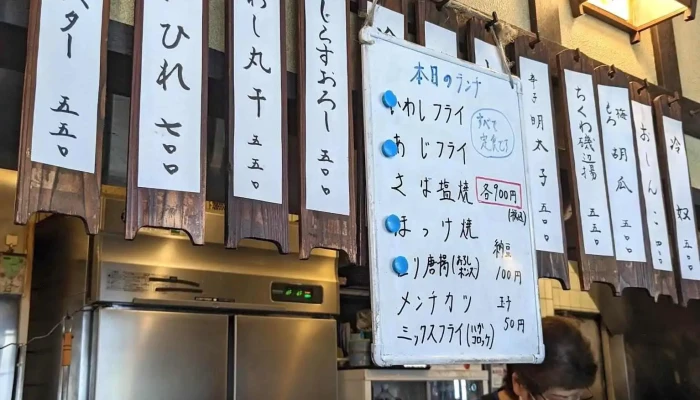 ター 五五〇
ひれ 七〇〇
わし丸干 五五〇
じらすおろし 五〇〇
本日のランチ
いわしフライ
あじフライ
すべて
定食です
さば塩焼
各900円
(税込)
ほっけ焼
唐揚(おろし
ポンズ)
納豆
100円
メンチカツ
玉子
50円
ミックスフライ(ハムカツ
コロッケ)
辛子明太子 五五〇
ちくわ磯辺揚 五五〇
梅もろ胡瓜 五五〇
おしんこ 四五〇
冷奴 五五〇